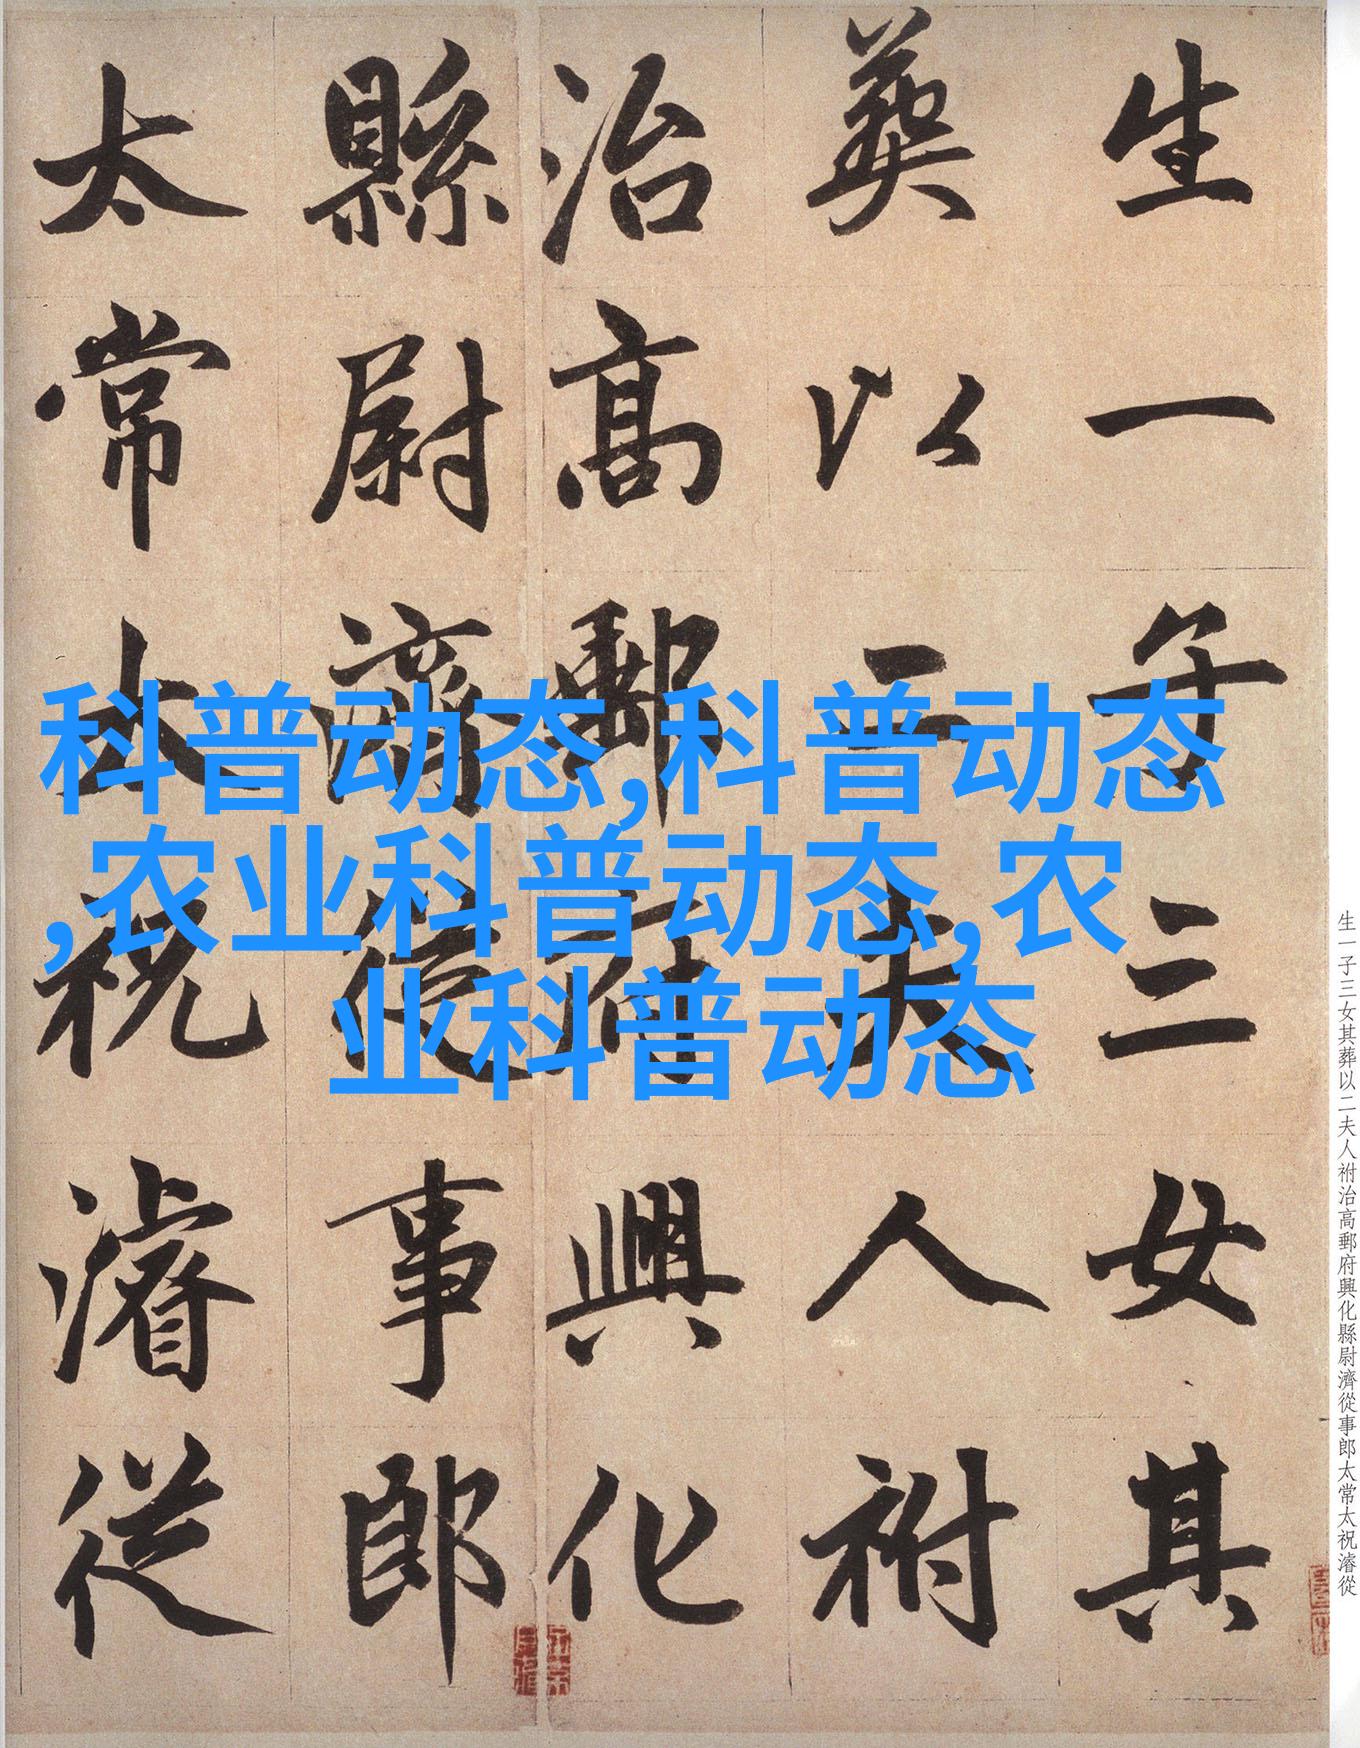 生一子三女其
葬以二夫人祔
治高郵府興化
縣尉濟從事郎
太常太祝濬從
科普动态,科普动态
,农业科普动态,农
业科普动态
生一子三女其葬以二夫人祔治高郵府興化縣尉濟從事郎太常太祝濬從